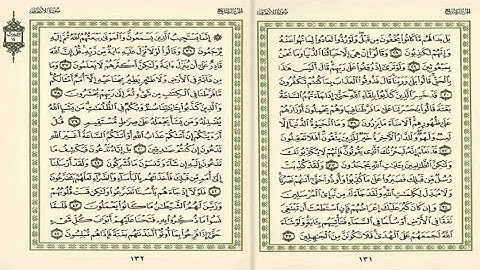 سُورَةُ الأَنعَامِ
الجُزءُ السَّابِعُ
بَلْ بَدَا لَهُم مَّا كَانُوا۟ يُخْفُونَ مِن قَبْلُ وَلَوْ رُدُّوا۟ لَعَادُوا۟ لِمَا نُهُوا۟ عَنْهُ
وَإِنَّهُمْ لَكَٰذِبُونَ ٢٨ وَقَالُوٓا۟ إِنْ هِىَ إِلَّا حَيَاتُنَا ٱلدُّنْيَا وَمَا نَحْنُ
بِمَبْعُوثِينَ ٢٩ وَلَوْ تَرَىٰٓ إِذْ وُقِفُوا۟ عَلَىٰ رَبِّهِمْ قَالَ أَلَيْسَ هَٰذَا
بِٱلْحَقِّ قَالُوا۟ بَلَىٰ وَرَبِّنَا قَالَ فَذُوقُوا۟ ٱلْعَذَابَ بِمَا كُنتُمْ تَكْفُرُونَ
٣٠ قَدْ خَسِرَ ٱلَّذِينَ كَذَّبُوا۟ بِلِقَآءِ ٱللَّهِ حَتَّىٰٓ إِذَا جَآءَتْهُمُ ٱلسَّاعَةُ
بَغْتَةً قَالُوا۟ يَٰحَسْرَتَنَا عَلَىٰ مَا فَرَّطْنَا فِيهَا وَهُمْ يَحْمِلُونَ أَوْزَارَهُمْ
عَلَىٰ ظُهُورِهِمْ أَلَا سَآءَ مَا يَزِرُونَ ٣١ وَمَا ٱلْحَيَوٰةُ ٱلدُّنْيَآ إِلَّا
لَعِبٌ وَلَهْوٌ وَلَلدَّارُ ٱلْـَٔاخِرَةُ خَيْرٌ لِّلَّذِينَ يَتَّقُونَ أَفَلَا تَعْقِلُونَ
٣٢ قَدْ نَعْلَمُ إِنَّهُۥ لَيَحْزُنُكَ ٱلَّذِى يَقُولُونَ فَإِنَّهُمْ لَا يُكَذِّبُونَكَ
وَلَٰكِنَّ ٱلظَّٰلِمِينَ بِـَٔايَٰتِ ٱللَّهِ يَجْحَدُونَ ٣٣ وَلَقَدْ كُذِّبَتْ
رُسُلٌ مِّن قَبْلِكَ فَصَبَرُوا۟ عَلَىٰ مَا كُذِّبُوا۟ وَأُوذُوا۟ حَتَّىٰٓ أَتَىٰهُمْ نَصْرُنَا
وَلَا مُبَدِّلَ لِكَلِمَٰتِ ٱللَّهِ وَلَقَدْ جَآءَكَ مِن نَّبَإِى۟ ٱلْمُرْسَلِينَ
٣٤ وَإِن كَانَ كَبُرَ عَلَيْكَ إِعْرَاضُهُمْ فَإِنِ ٱسْتَطَعْتَ أَن تَبْتَغِىَ
نَفَقًا فِى ٱلْأَرْضِ أَوْ سُلَّمًا فِى ٱلسَّمَآءِ فَتَأْتِيَهُم بِـَٔايَةٍ وَلَوْ شَآءَ
ٱللَّهُ لَجَمَعَهُمْ عَلَى ٱلْهُدَىٰ فَلَا تَكُونَنَّ مِنَ ٱلْجَٰهِلِينَ ٣٥
١٣١
الجُزءُ السَّابِعُ
سُورَةُ الأَنعَامِ
إِنَّمَا يَسْتَجِيبُ ٱلَّذِينَ يَسْمَعُونَ وَٱلْمَوْتَىٰ يَبْعَثُهُمُ ٱللَّهُ ثُمَّ إِلَيْهِ
يُرْجَعُونَ ٣٦ وَقَالُوا۟ لَوْلَا نُزِّلَ عَلَيْهِ ءَايَةٌ مِّن رَّبِّهِۦ قُلْ إِنَّ ٱللَّهَ
قَادِرٌ عَلَىٰٓ أَن يُنَزِّلَ ءَايَةً وَلَٰكِنَّ أَكْثَرَهُمْ لَا يَعْلَمُونَ ٣٧ وَمَا
مِن دَآبَّةٍ فِى ٱلْأَرْضِ وَلَا طَٰٓئِرٍ يَطِيرُ بِجَنَاحَيْهِ إِلَّآ أُمَمٌ أَمْثَالُكُم
مَّا فَرَّطْنَا فِى ٱلْكِتَٰبِ مِن شَىْءٍ ثُمَّ إِلَىٰ رَبِّهِمْ يُحْشَرُونَ ٣٨
وَٱلَّذِينَ كَذَّبُوا۟ بِـَٔايَٰتِنَا صُمٌّ وَبُكْمٌ فِى ٱلظُّلُمَٰتِ مَن يَشَإِ ٱللَّهُ
يُضْلِلْهُ وَمَن يَشَأْ يَجْعَلْهُ عَلَىٰ صِرَٰطٍ مُّسْتَقِيمٍ ٣٩ قُلْ
أَرَءَيْتَكُمْ إِنْ أَتَىٰكُمْ عَذَابُ ٱللَّهِ أَوْ أَتَتْكُمُ ٱلسَّاعَةُ أَغَيْرَ ٱللَّهِ
تَدْعُونَ إِن كُنتُمْ صَٰدِقِينَ ٤٠ بَلْ إِيَّاهُ تَدْعُونَ فَيَكْشِفُ مَا
تَدْعُونَ إِلَيْهِ إِن شَآءَ وَتَنسَوْنَ مَا تُشْرِكُونَ ٤١ وَلَقَدْ أَرْسَلْنَآ
إِلَىٰٓ أُمَمٍ مِّن قَبْلِكَ فَأَخَذْنَٰهُم بِٱلْبَأْسَآءِ وَٱلضَّرَّآءِ لَعَلَّهُمْ يَتَضَرَّعُونَ
٤٢ فَلَوْلَآ إِذْ جَآءَهُم بَأْسُنَا تَضَرَّعُوا۟ وَلَٰكِن قَسَتْ قُلُوبُهُمْ
وَزَيَّنَ لَهُمُ ٱلشَّيْطَٰنُ مَا كَانُوا۟ يَعْمَلُونَ ٤٣ فَلَمَّا
نَسُوا۟ مَا ذُكِّرُوا۟ بِهِۦ فَتَحْنَا عَلَيْهِمْ أَبْوَٰبَ كُلِّ شَىْءٍ
حَتَّىٰٓ إِذَا فَرِحُوا۟ بِمَآ أُوتُوٓا۟ أَخَذْنَٰهُم بَغْتَةً فَإِذَا هُم مُّبْلِسُونَ ٤٤
١٣٢